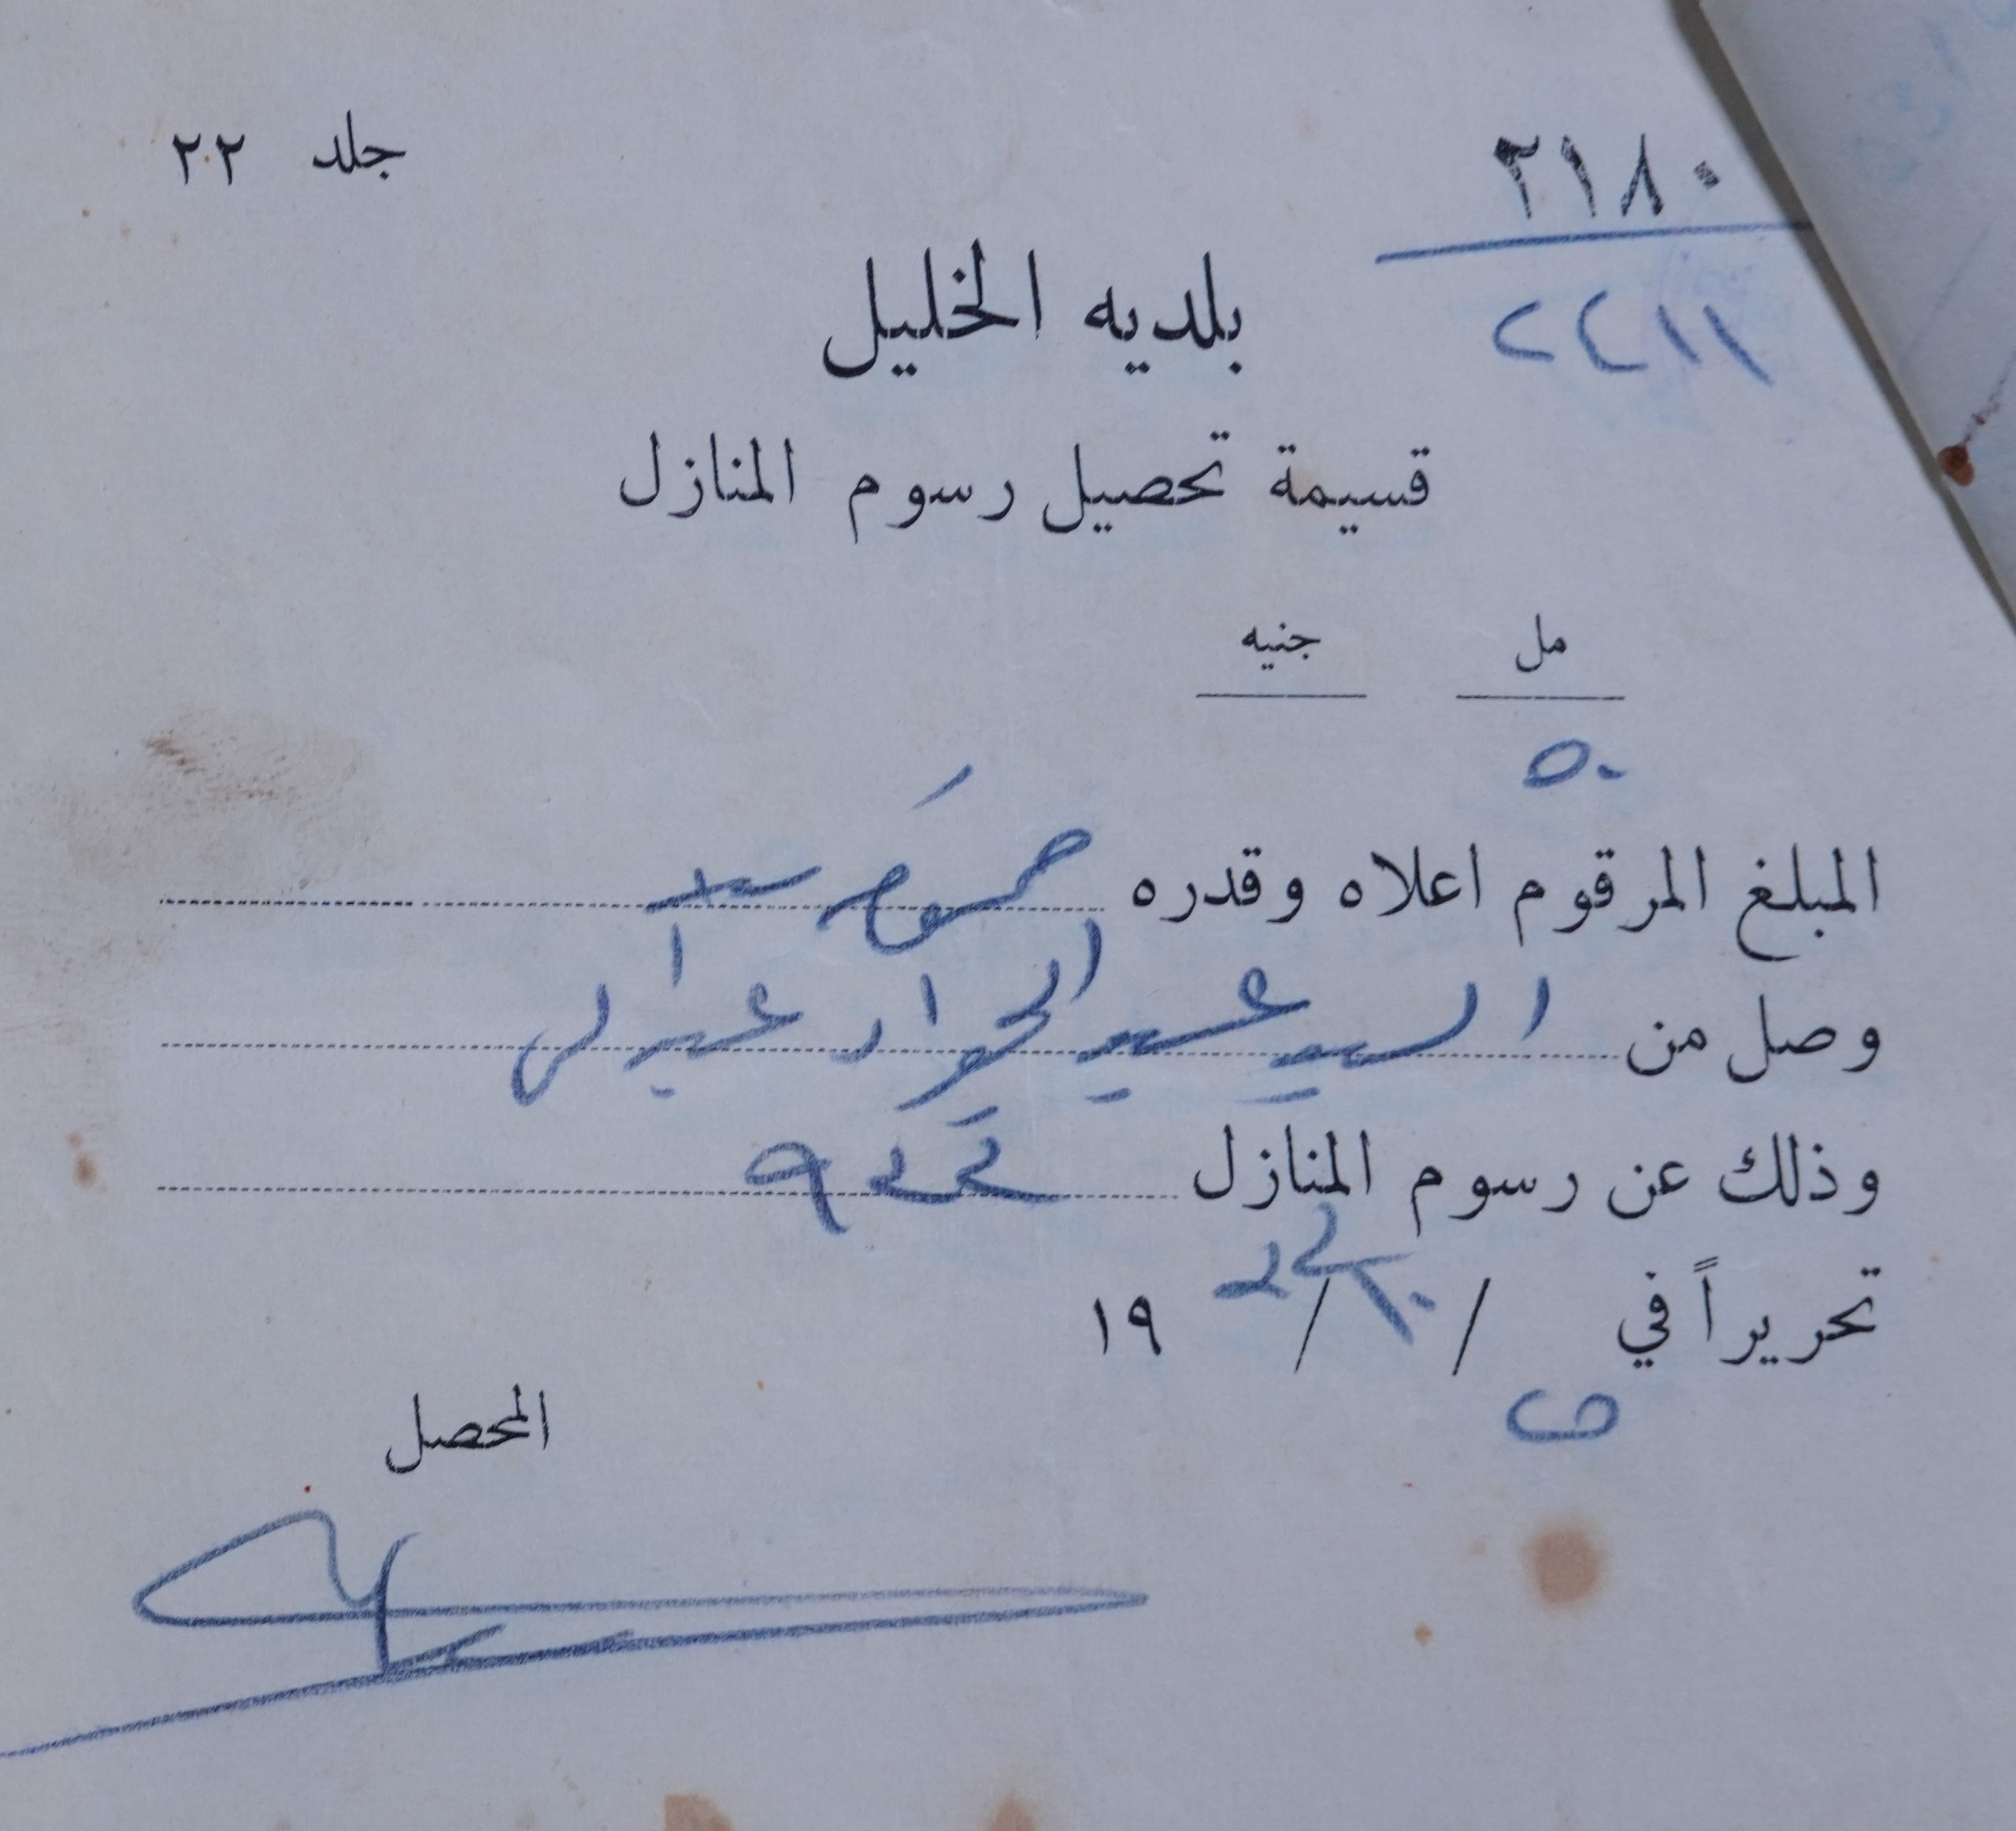 ٢١٨٠ جلد ٢٢
٢٢١١
بلديه الخليل
قسيمة تحصيل رسوم المنازل
مل جنيه
٥٠
المبلغ المرقوم اعلاه وقدره خمسون مل
وصل من السيد عبد الجواد
وذلك عن رسوم المنازل
تحريراً في / / ١٩
المحصل